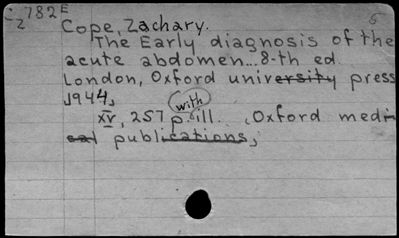 782E
2
6
Cope, Zachary.
The Early diagnosis of the
acute abdomen... 8-th ed.
London, Oxford university press
1944,
with
xv, 257 p. ill. , Oxford medi-
cal publications,